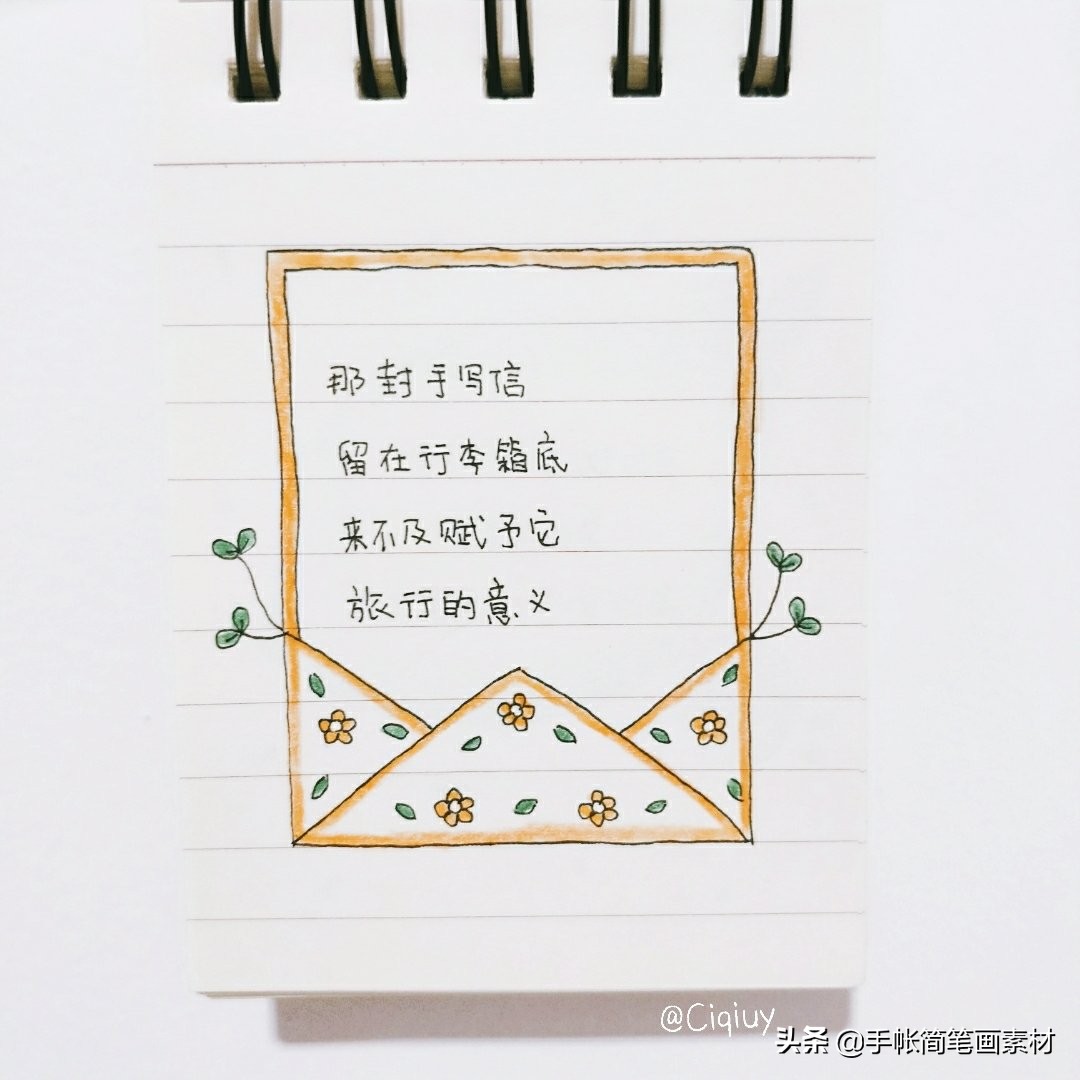 那封手写信
留在行李箱底
来不及赋予它
旅行的意义
@Ciqiuy
头条 @手帐简笔画素材